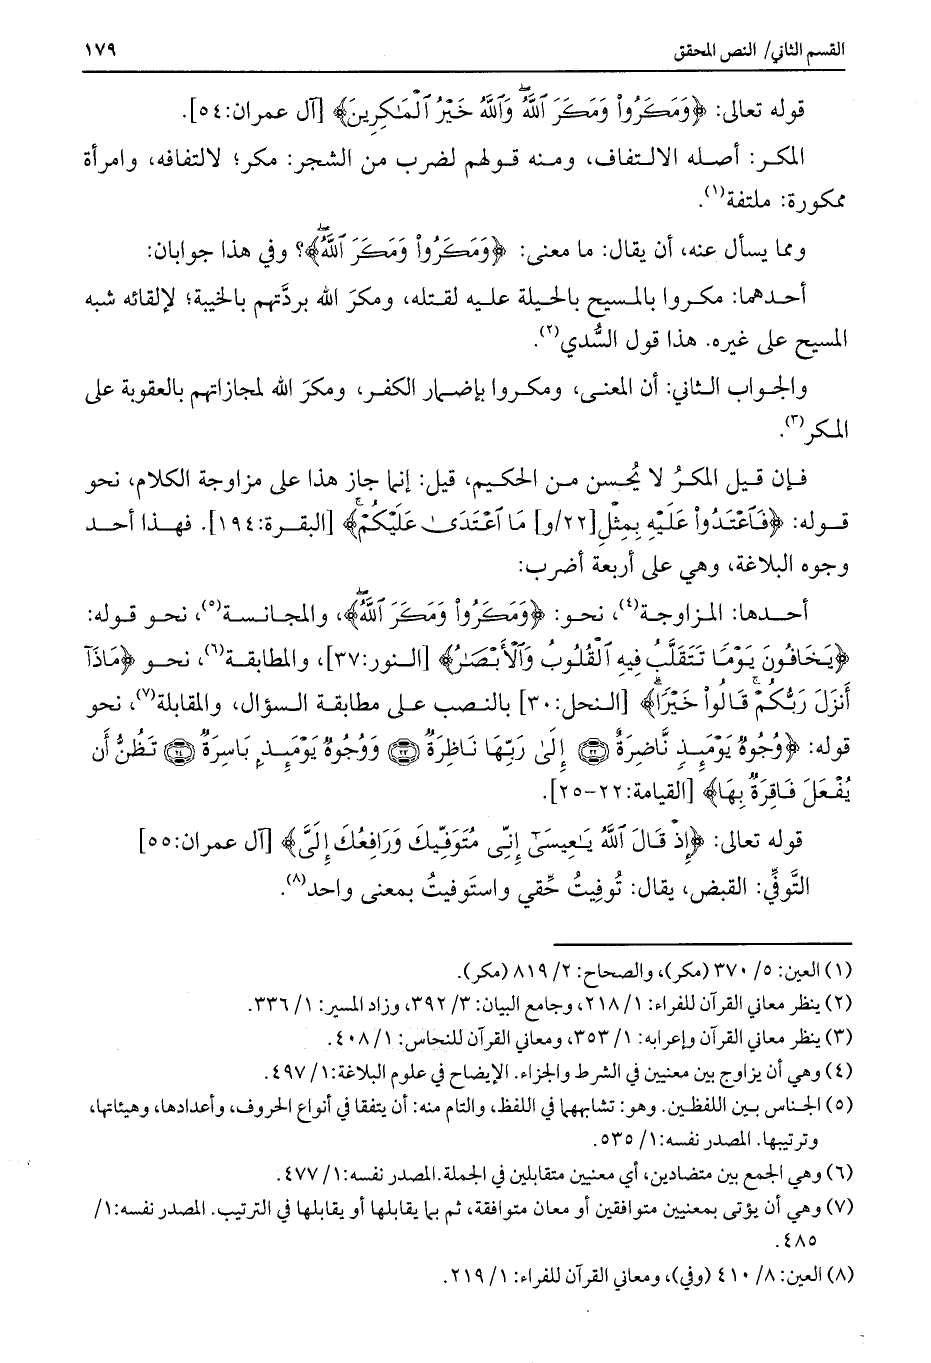 القسم الثاني/ النص المحقق ١٧٩
قوله تعالى: ﴿وَمَكَرُوا۟ وَمَكَرَ ٱللَّهُ ۖ وَٱللَّهُ خَيْرُ ٱلْمَـٰكِرِينَ﴾ [آل عمران:٥٤].
المكر: أصله الالتفاف، ومنه قولهم لضرب من الشجر: مكر؛ لالتفافه، وامرأة
ممكورة: ملتفة(١).
ومما يسأل عنه، أن يقال: ما معنى: ﴿وَمَكَرُوا۟ وَمَكَرَ ٱللَّهُ ۖ﴾؟ وفي هذا جوابان:
أحدهما: مكروا بالمسيح بالحيلة عليه لقتله، ومكرَ الله بردَّتهم بالخيبة؛ لإلقائه شبه
المسيح على غيره. هذا قول السُّدي(٢).
والجواب الثاني: أن المعنى، ومكروا بإضمار الكفر، ومكرَ الله لمجازاتهم بالعقوبة على
المكر(٣).
فإن قيل المكرُ لا يُحسن من الحكيم، قيل: إنما جاز هذا على مزاوجة الكلام، نحو
قوله: ﴿فَٱعْتَدُوا۟ عَلَيْهِ بِمِثْلِ[٢٢/و] مَا ٱعْتَدَىٰ عَلَيْكُمْ ۚ﴾ [البقرة:١٩٤]. فهذا أحد
وجوه البلاغة، وهي على أربعة أضرب:
أحدها: المزاوجة(٤)، نحو: ﴿وَمَكَرُوا۟ وَمَكَرَ ٱللَّهُ ۖ﴾، والمجانسة(٥)، نحو قوله:
﴿يَخَافُونَ يَوْمًا تَتَقَلَّبُ فِيهِ ٱلْقُلُوبُ وَٱلْأَبْصَـٰرُ﴾ [النور:٣٧]، والمطابقة(٦)، نحو ﴿مَاذَآ
أَنزَلَ رَبُّكُمْ ۚ قَالُوا۟ خَيْرًا ۗ﴾ [النحل:٣٠] بالنصب على مطابقة السؤال، والمقابلة(٧)، نحو
قوله: ﴿وُجُوهٌ يَوْمَئِذٍ نَّاضِرَةٌ ٢٢ إِلَىٰ رَبِّهَا نَاظِرَةٌ ٢٣ وَوُجُوهٌ يَوْمَئِذٍۭ بَاسِرَةٌ ٢٤ تَظُنُّ أَن
يُفْعَلَ بِهَا فَاقِرَةٌ﴾ [القيامة:٢٢-٢٥].
قوله تعالى: ﴿إِذْ قَالَ ٱللَّهُ يَـٰعِيسَىٰٓ إِنِّى مُتَوَفِّيكَ وَرَافِعُكَ إِلَىَّ﴾ [آل عمران:٥٥]
التَّوفِّي: القبض، يقال: تُوفيتُ حِّقي واستَوفيتُ بمعنى واحد(٨).
(١) العين: ٥/ ٣٧٠ (مكر)، والصحاح: ٢/ ٨١٩ (مكر).
(٢) ينظر معاني القرآن للفراء: ١/ ٢١٨، وجامع البيان: ٣/ ٣٩٢، وزاد المسير: ١/ ٣٣٦.
(٣) ينظر معاني القرآن وإعرابه: ١/ ٣٥٣، ومعاني القرآن للنحاس: ١/ ٤٠٨.
(٤) وهي أن يزاوج بين معنيين في الشرط والجزاء. الإيضاح في علوم البلاغة:١/ ٤٩٧.
(٥) الجناس بين اللفظين. وهو: تشابههما في اللفظ، والتام منه: أن يتفقا في أنواع الحروف، وأعدادها، وهيئاتها،
وترتيبها. المصدر نفسه:١/ ٥٣٥.
(٦) وهي الجمع بين متضادين، أي معنيين متقابلين في الجملة.المصدر نفسه:١/ ٤٧٧.
(٧) وهي أن يؤتى بمعنيين متوافقين أو معان متوافقة، ثم بما يقابلها أو يقابلها في الترتيب. المصدر نفسه:١/
٤٨٥.
(٨) العين: ٨/ ٤١٠ (وفي)، ومعاني القرآن للفراء: ١/ ٢١٩.